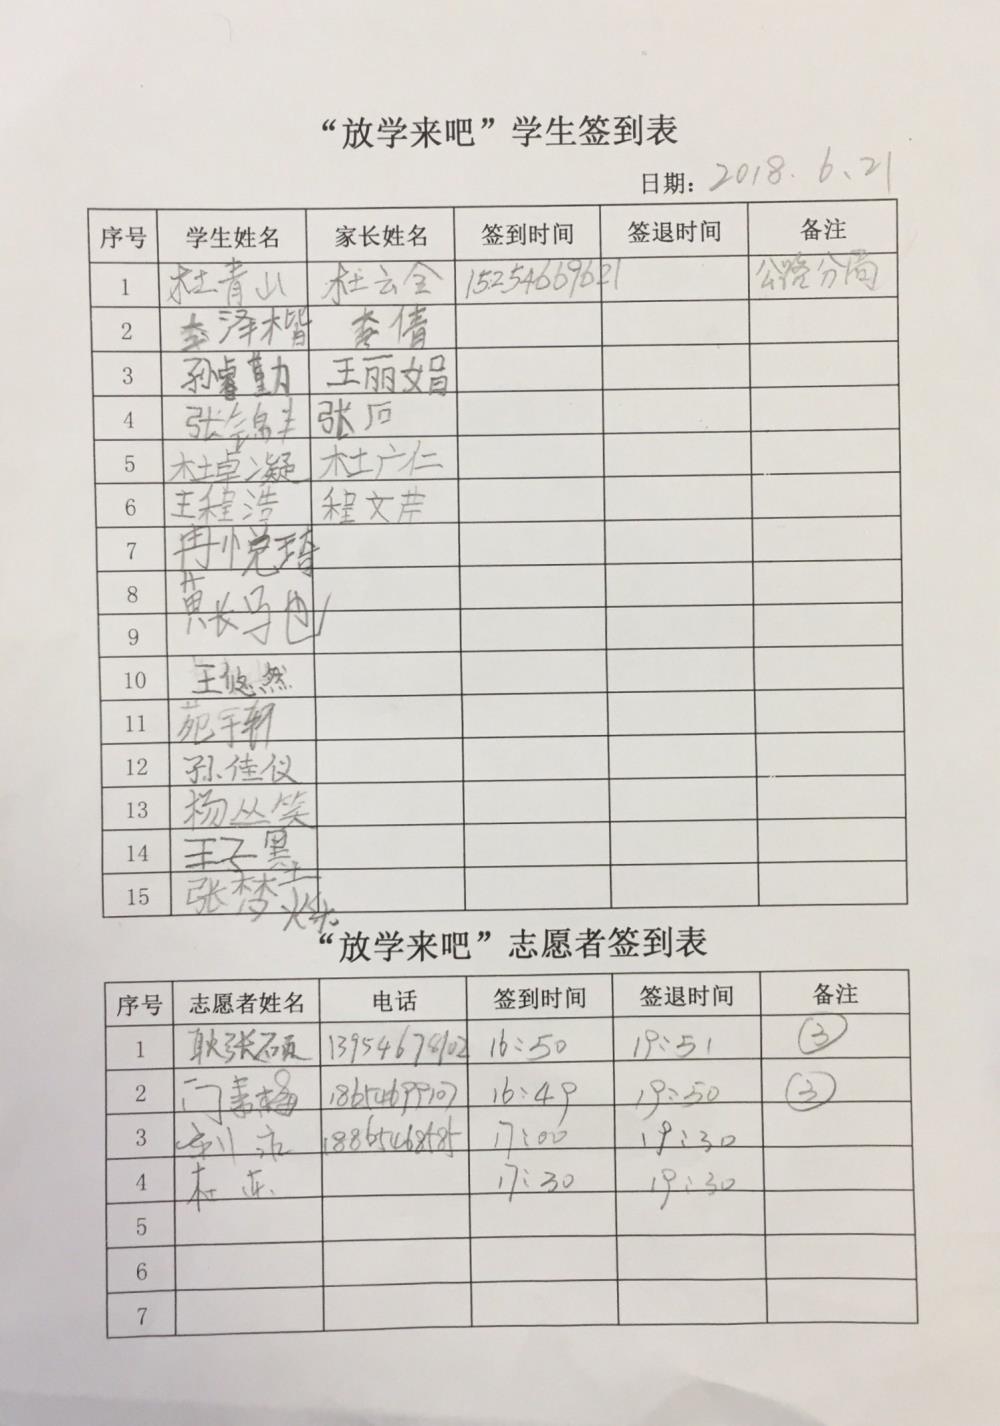 “放学来吧”学生签到表
日期：2018.6.21
序号 学生姓名 家长姓名 签到时间 签退时间 备注
1 杜青山 杜云全 15254669621 公路分局
2 李泽楷 李倩
3 孙睿勤 王丽娟
4 张锦丰 张石
5 杜卓凝 杜广仁
6 王程浩 程文芹
7 冉小悦琦
8 黄长马也
9
10 王悠然
11 苑子轩
12 孙佳仪
13 杨丛笑
14 王子墨
15 张梦烁
“放学来吧”志愿者签到表
序号 志愿者姓名 电话 签到时间 签退时间 备注
1 耿张硕 13954678902 16:50 19:51 ③
2 门素梅 18654699107 16:49 19:50 ③
3 18865468585 17:00 19:30
4 杜 17:30 19:30
5
6
7